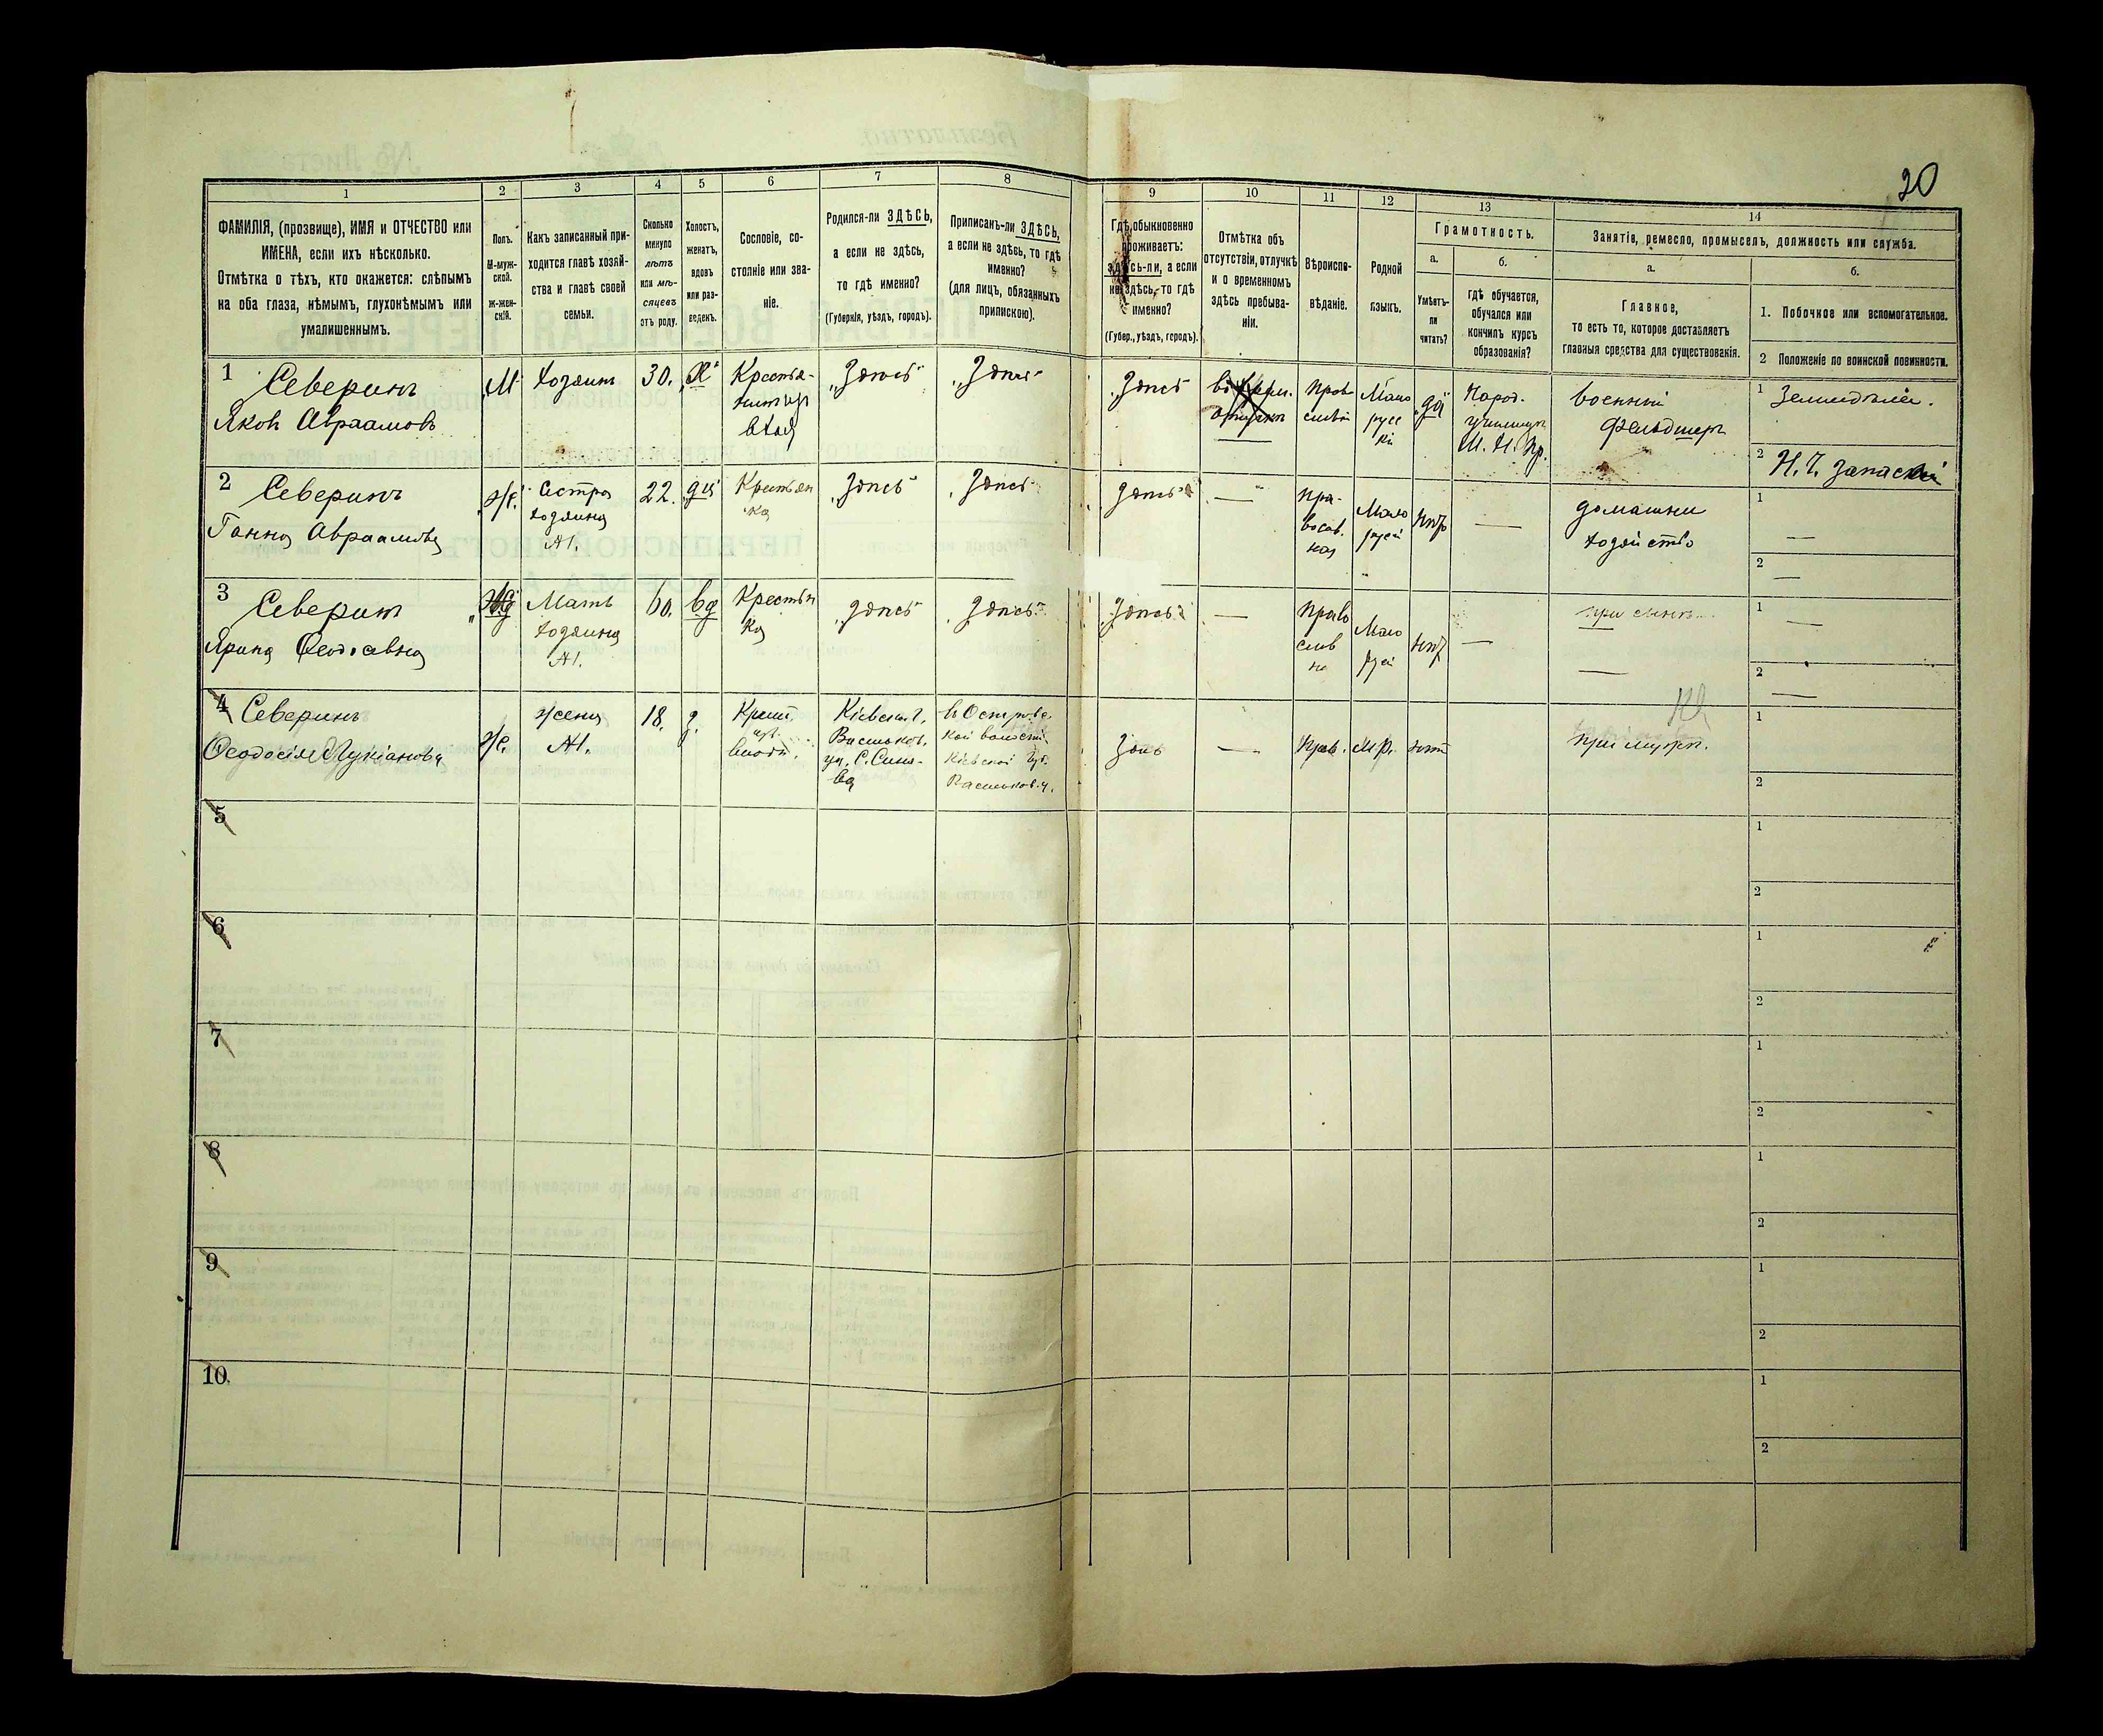 20
1 2 3 4 5 6 7 8 9 10 11 12 13 14
ФАМИЛІЯ, (прозвище), ИМЯ и ОТЧЕСТВО или
ИМЕНА, если ихъ нѣсколько.
Отмѣтка о тѣхъ, кто окажется: слѣпымъ
на оба глаза, нѣмымъ, глухонѣмымъ или
умалишеннымъ.
Полъ.
М-муж-
ской.
ж-жен-
скій.
Какъ записанный при-
ходится главѣ хозяй-
ства и главѣ своей
семьи.
Сколько
минуло
лѣтъ
или мѣ-
сяцевъ
отъ роду.
Холостъ,
женатъ,
вдовъ
или раз-
веденъ.
Сословіе, со-
стояніе или зва-
ніе.
Родился-ли ЗДѢСЬ,
а если не здѣсь,
то гдѣ именно?
(Губернія, уѣздъ, городъ).
Приписанъ-ли ЗДѢСЬ,
а если не здѣсь, то гдѣ
именно?
(для лицъ, обязанныхъ
припискою).
Гдѣ обыкновенно
проживаетъ:
здѣсь-ли, а если
не здѣсь, то гдѣ
именно?
(Губер., уѣздъ, городъ).
Отмѣтка объ
отсутствіи, отлучкѣ
и о временномъ
здѣсь пребыва-
ніи.
Вѣроиспо-
вѣданіе.
Родной
языкъ.
Грамотность.
а.
Умѣетъ-
ли
читать?
б.
гдѣ обучается,
обучался или
кончилъ курсъ
образованія?
Занятіе, ремесло, промыселъ, должность или служба.
а.
Главное,
то есть то, которое доставляетъ
главныя средства для существованія.
б.
1. Побочное или вспомогательное.
2 Положеніе по воинской повинности.
1 Северинъ
Яковъ Авраамовъ
М
Хозяинъ
30.
Х
Крестья-
нинъ
„Здѣсь“
„Здѣсь“
„Здѣсь“
Мало
русс
кій
да
Народ.
училище
М. Н. Пр.
военный
фельдшеръ
1 Земледѣліе.
2 Н. Ч. Запаса
2 Северинъ
Ганна Авраамовна
ж.
Сестра
хозяина
№1.
22.
дѣв
Крестьян
ка
„Здѣсь“
„Здѣсь“
здѣсь
—
пра-
восл.
ная
Мало
русск
нѣт
—
домашнее
хозяйство
1 —
2 —
3 Северинъ
Ярина Феодосевна
Мать
хозяина
№1.
60.
вд
Крестьян
ка
„здѣсь“
„здѣсь“
„Здѣсь“
—
Право
слав
на
Мало
русск
нѣт
—
при сынѣ.
—
1 —
2 —
4 Северинъ
Феодосія Лукіановна
ж.
жена
№1.
18.
з.
Крест.
Кіевская г.
Васильков.
уѣ. С. Синя-
ва
въ Остров
ской волости
Кіевской Губ.
Васильков. у.
Здѣсь
—
Прав.
М. р.
нѣт
при мужѣ.
1
2
5 1
2
6 1
2
7 1
2
8 1
2
9 1
2
10. 1
2